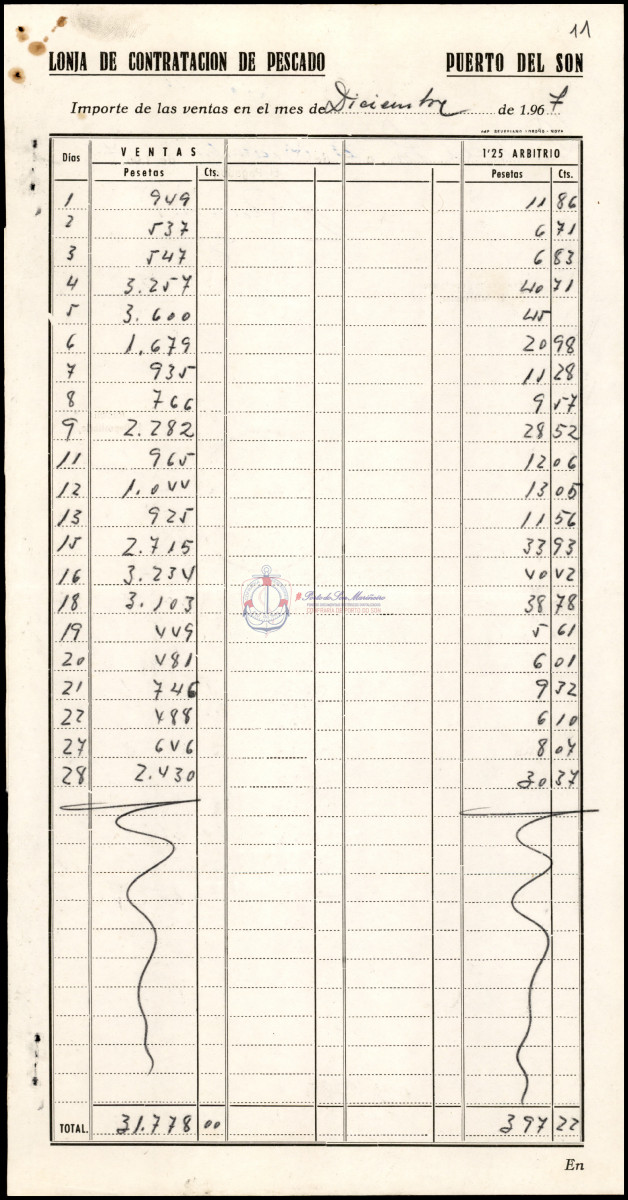 11
LONJA DE CONTRATACION DE PESCADO PUERTO DEL SON
Importe de las ventas en el mes de Diciembre de 1.967
IMP. SEVERIANO IMEÑO - NOYA
Días VENTAS 1'25 ARBITRIO
Pesetas Cts. Pesetas Cts.
1 949 11 86
2 537 6 71
3 547 6 83
4 3.257 40 71
5 3.600 45
6 1.679 20 98
7 935 11 28
8 766 9 57
9 2.282 28 52
11 965 12 06
12 1.044 13 05
13 925 11 56
15 2.715 33 93
16 3.234 40 42
18 3.103 38 78
19 449 5 61
20 481 6 01
21 746 9 32
22 488 6 10
27 646 8 07
28 2.430 30 37
Porto do Son Mariñeiro
TOTAL. 31.778 00 397 22
En